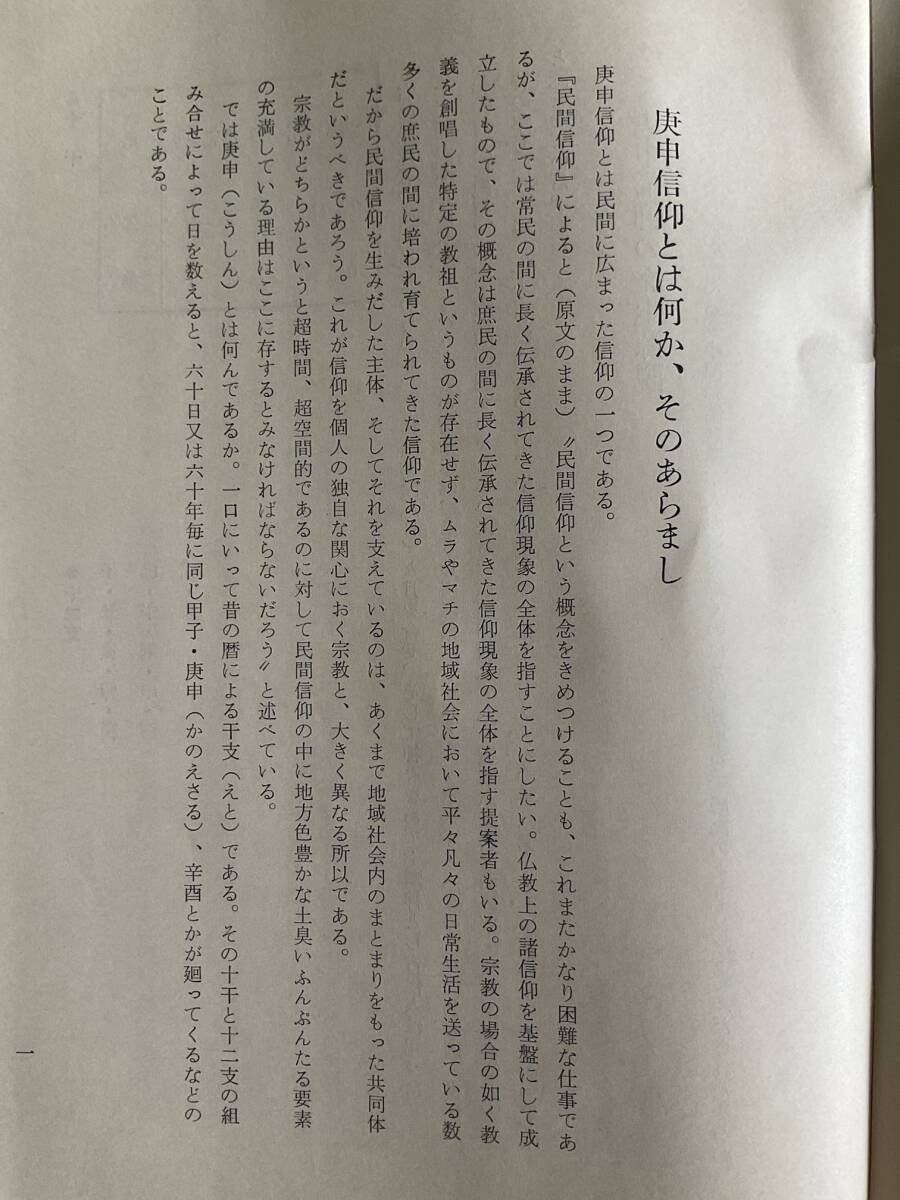 庚申信仰とは何か、そのあらまし
庚申信仰とは民間に広まった信仰の一つである。
『民間信仰』によると（原文のまま）〝民間信仰という概念をきめつけることも、これまたかなり困難な仕事であ
るが、ここでは常民の間に長く伝承されてきた信仰現象の全体を指すことにしたい。仏教上の諸信仰を基盤にして成
立したもので、その概念は庶民の間に長く伝承されてきた信仰現象の全体を指す提案者もいる。宗教の場合の如く教
義を創唱した特定の教祖というものが存在せず、ムラやマチの地域社会において平々凡々の日常生活を送っている数
多くの庶民の間に培われ育てられてきた信仰である。
だから民間信仰を生みだした主体、そしてそれを支えているのは、あくまで地域社会内のまとまりをもった共同体
だというべきであろう。これが信仰を個人の独自な関心におく宗教と、大きく異なる所以である。
宗教がどちらかというと超時間、超空間的であるのに対して民間信仰の中に地方色豊かな土臭いふんぷんたる要素
の充満している理由はここに存するとみなければならないだろう〟と述べている。
では庚申（こうしん）とは何んであるか。一口にいって昔の暦による干支（えと）である。その十干と十二支の組
み合せによって日を数えると、六十日又は六十年毎に同じ甲子・庚申（かのえさる）、辛酉とかが廻ってくるなどの
ことである。
一